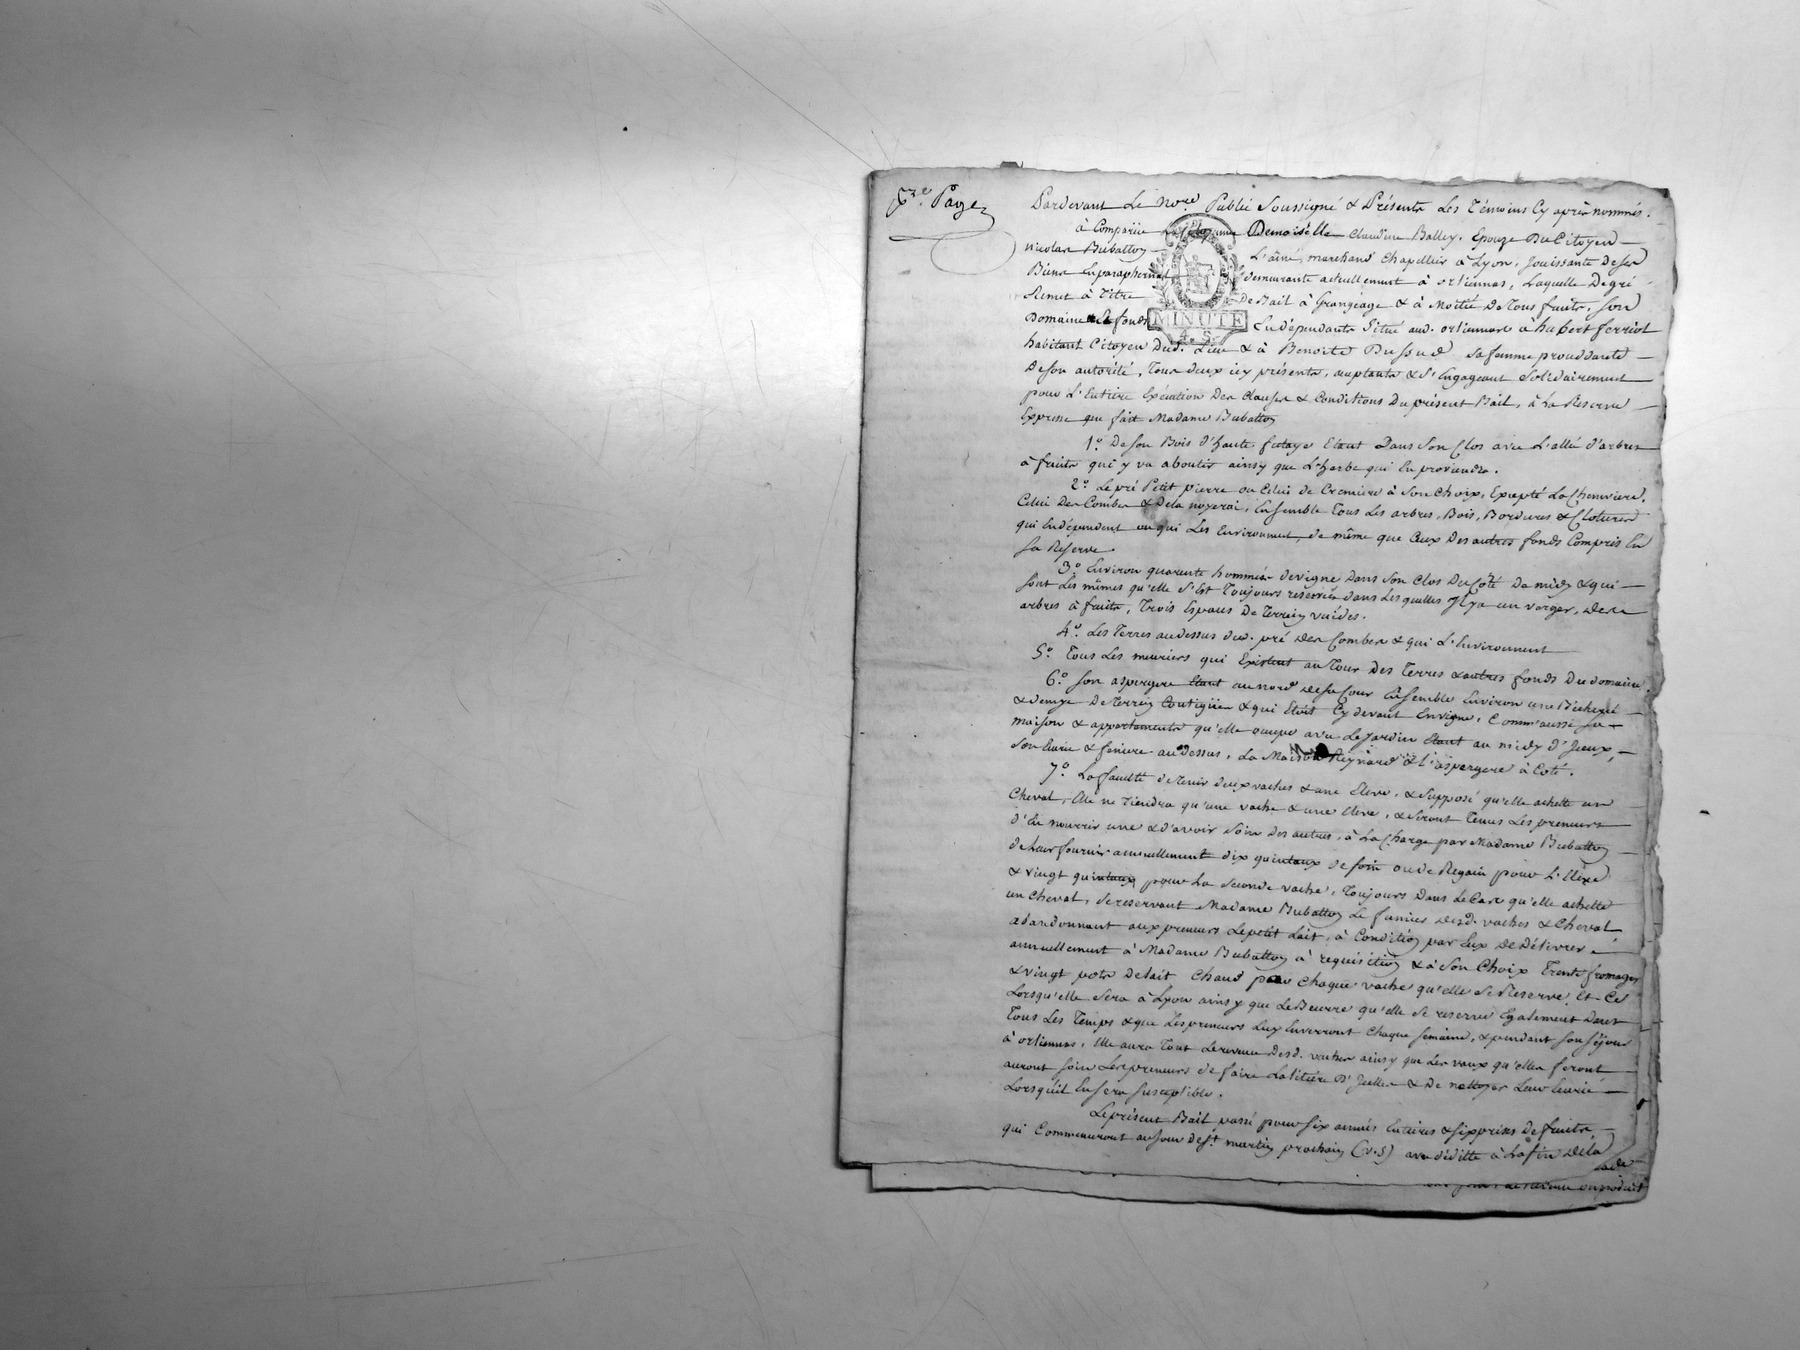 3.e Page
Pardevant Le No.re Public Soussigné & Présents Les Témoins Cy après nommés.
à Comparüe La Citoyenne Demoiselle Claudine Balley. Epouse Du Citoyen
nicolas Bubatton L'ainé, marchand Chapellier à Lyon, Jouissante De ses
Biens En paraphernal demeurante actuellement à orliennas, Laquelle De gré
Remet à Titre De Bail à Grangéage & à Moitié De Tous fruits, son
Domaine & fonds En dépendants Situé aud. orliennas à hubert ferriot
habitant Citoyen Dud. Lieu & à Benoite Dussud sa femme procedante
De son autorité, Tous deux icy présents, acceptants & S'Engageant Solidairement
pour L'Entiere Exécution Des Clauses & Conditions Du présent Bail, à La Reserve
Expresse que fait Madame Bubatton
1.º De son Bois d'haute futaye Etant Dans Son Clos avec L'allé d'arbres
à fruits qui y va aboutir ainsy que L'herbe qui En proviendra.
2.º Le pré Petit pierre ou Celui de Cremiere à Son Choix, Excepté La Cheneviere,
Celui Des Combes & De la noyerai, Ensemble Tous Les arbres, Bois, Bordures & Clotures
qui En dépendent ou qui Les Environnent, de même que Ceux Des autres fonds Compris En
Sa Reserve
3.º Environ quarante hommées de vigne Dans Son Clos Du Côté De midy & qui
sont Les mêmes qu'elle S'Est Toujours reservées dans Les quelles Il y a un verger, des
arbres à fruits, Trois Espaces De Terrein vuides.
4.º Les Terres au dessus dud. pré Des Combes & qui L'Environnent
5.º Tous Les meuriers qui Existent au Tour Des Terres & autres fonds Du domaine
6.º Son aspergere Etant au nord de sa Cour Ensemble Environ une Bicherée
& demye De Terrein Contiguë & qui Etoit Cy devant En vigne, Comm'aussi sa
maison & appartements qu'elle occupe avec Le Jardin Etant au midy d'Iceux,
Son Ecurie & feniere au Dessus, La Maison Reynard & l'aspergere à Coté.
7.º La faculté de Tenir deux vaches & une Eleve, & Supposé qu'elle achette un
Cheval, Elle ne Tiendra qu'une vache & une Eleve, & Seront Tenus Les preneurs
d'En nourrir une & d'avoir Soin Des autres, à La Charge par Madame Bubatton
de Leur fournir annuellement dix quintaux de foin ou de Regain pour L'Eleve
& vingt quintaux pour La Seconde vache, Toujours Dans Le Cas qu'elle achette
un Cheval, Se reservant Madame Bubatton Le fumier desd. vaches & Cheval
abandonnant aux preneurs Le petit Lait, à Condition par Eux De Délivrer
annuellement à Madame Bubatton à requisition & à Son Choix Trente fromages
& vingt pots De lait Chaud pour Chaque vache qu'elle Se Reserve, Et Ce
Lorsqu'elle Sera à Lyon ainsy que Le Beurre qu'elle Se reserve Egalement Dans
Tous Les Temps & que Les preneurs Luy Enverront Chaque Semaine, & pendant Son Séjour
à orliennas, Elle aura Tout Le revenu Desd. vaches ainsy que Les vaux qu'elles feront
auront Soin Les preneurs de faire La litiere D'Icelles & De nettoyer Leur Ecurie
Lorsqu'il En sera Susceptible.
Le présent Bail passé pour Six années Entieres & Six prises de fruits,
qui Commenceront au Jour de St. martin prochain (v.s) avec déditte à La fin De la